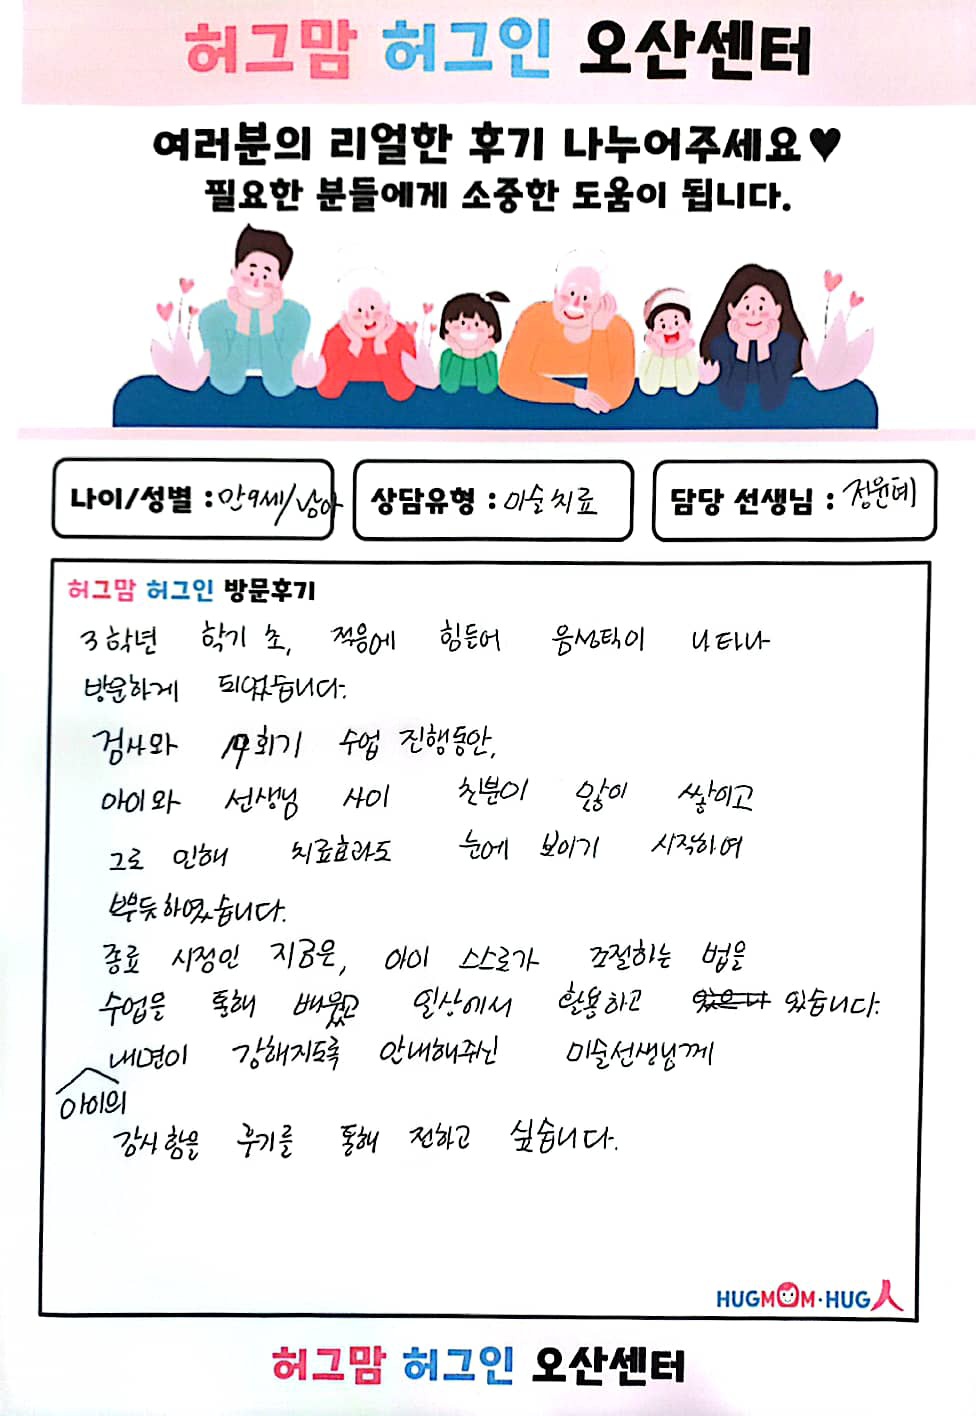 허그맘 허그인 오산센터
여러분의 리얼한 후기 나누어주세요♥
필요한 분들에게 소중한 도움이 됩니다.
나이/성별 : 만9세/남아
상담유형 : 미술치료
담당 선생님 : 정윤데
허그맘 허그인 방문후기
3학년 학기 초, 적응에 힘든어 음성틱이 나타나
방문하게 되었습니다.
검사와 회기 수업 진행동안,
아이와 선생님 사이 친분이 많이 쌓이고
그로 인해 치료효과도 눈에 보이기 시작하여
뿌듯하였습니다.
종료 시점인 지금은, 아이 스스로가 조절하는 법을
수업을 통해 배웠고 일상에서 활용하고 있습니다.
내면이 강해지도록 안내해주신 미술선생님께
아이의
감사함을 후기를 통해 전하고 싶습니다.
HUGMOM·HUG人
허그맘 허그인 오산센터